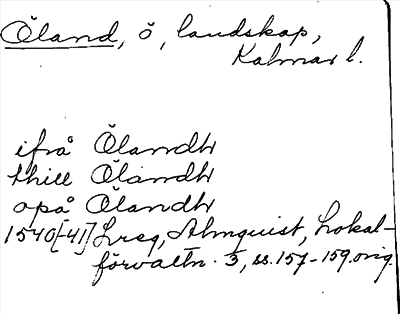 Öland, ö, landskap,
Kalmar l.
ifrå Ölandh
thill Ölandh
opå Ölandh
1540[-41] Lreg, Almquist, Lokal-
förvaltn. 3, ss. 157-159. orig.